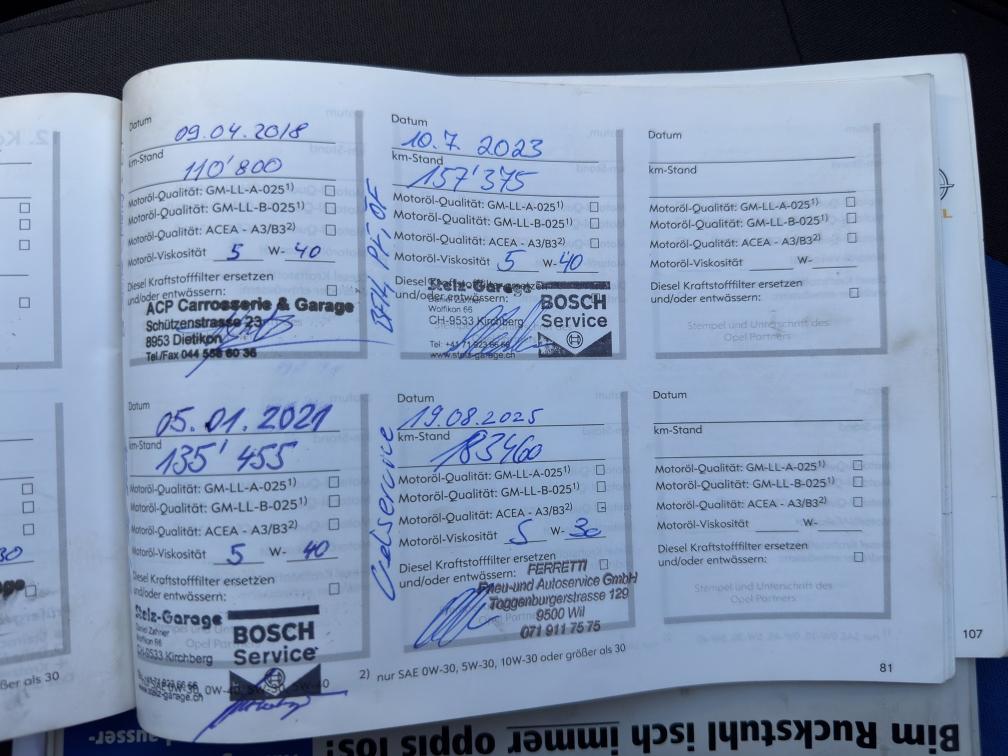 Datum
09.04.2018
km-Stand
110'800
Motoröl-Qualität: GM-LL-A-025¹⁾
Motoröl-Qualität: GM-LL-B-025¹⁾
Motoröl-Qualität: ACEA - A3/B3²⁾
Motoröl-Viskosität 5 W- 40
Diesel Kraftstofffilter ersetzen
und/oder entwässern:
ACP Carrosserie & Garage
Schützenstrasse 23
8953 Dietikon
Tel./Fax 044 558 60 36
Datum
10.7 2023
km-Stand
157'375
Motoröl-Qualität: GM-LL-A-025¹⁾
Motoröl-Qualität: GM-LL-B-025¹⁾
Motoröl-Qualität: ACEA - A3/B3²⁾
Motoröl-Viskosität 5 W- 40
Diesel Kraftstofffilter ersetzen
und/oder entwässern:
Stelz-Garage
Wolfikon 66
CH-9533 Kirchberg
www.stelz-garage.ch
BOSCH
Service
Datum
km-Stand
Motoröl-Qualität: GM-LL-A-025¹⁾
Motoröl-Qualität: GM-LL-B-025¹⁾
Motoröl-Qualität: ACEA - A3/B3²⁾
Motoröl-Viskosität W-
Diesel Kraftstofffilter ersetzen
und/oder entwässern:
Stempel und Unterschrift des
Opel Partners
Datum
05.01.2021
km-Stand
135'455
Motoröl-Qualität: GM-LL-A-025¹⁾
Motoröl-Qualität: GM-LL-B-025¹⁾
Motoröl-Qualität: ACEA - A3/B3²⁾
Motoröl-Viskosität 5 W- 40
Diesel Kraftstofffilter ersetzen
und/oder entwässern:
Stelz-Garage
Daniel Zehner
Wolfikon 66
CH-9533 Kirchberg
www.stelz-garage.ch
BOSCH
Service
Oelservice
Datum
19.08.2025
km-Stand
183460
Motoröl-Qualität: GM-LL-A-025¹⁾
Motoröl-Qualität: GM-LL-B-025¹⁾
Motoröl-Qualität: ACEA - A3/B3²⁾
Motoröl-Viskosität 5 W- 30
Diesel Kraftstofffilter ersetzen
und/oder entwässern:
FERRETTI
Pneu-und Autoservice GmbH
Toggenburgerstrasse 129
9500 Wil
071 911 75 75
Datum
km-Stand
Motoröl-Qualität: GM-LL-A-025¹⁾
Motoröl-Qualität: GM-LL-B-025¹⁾
Motoröl-Qualität: ACEA - A3/B3²⁾
Motoröl-Viskosität W-
Diesel Kraftstofffilter ersetzen
und/oder entwässern:
Stempel und Unterschrift des
Opel Partners
2) nur SAE 0W-30, 5W-30, 10W-30 oder größer als 30
81
107
Bim Ruckstuhl isch immer oppis los!